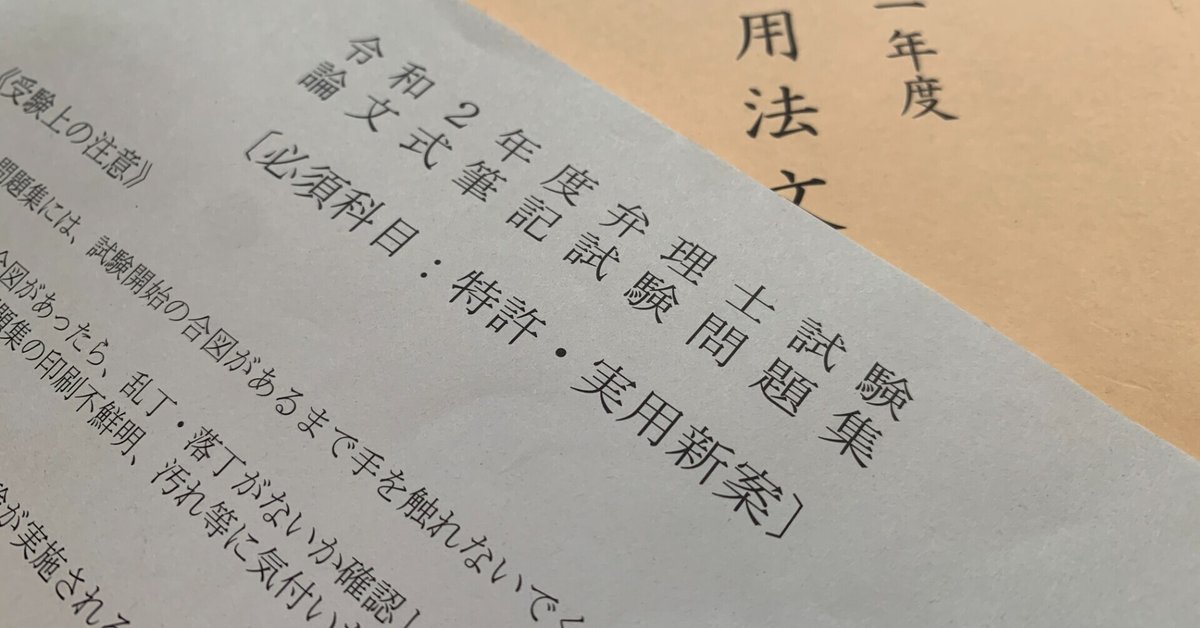 令和2年度弁理士試験
論文式筆記試験問題集
〔必須科目：特許・実用新案〕
《受験上の注意》
問題集には、試験開始の合図があるまで手を触れないでく
合図があったら、乱丁・落丁がないか確認し
題集の印刷不鮮明、汚れ等に気付い
が実施される
一年度
用法文